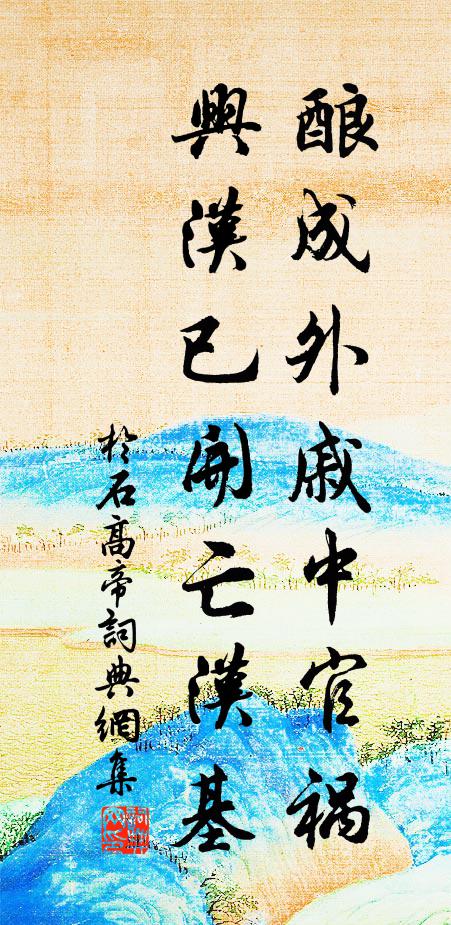 酿成外戚中官祸
興漢已開亡漢基
於石高帝詞典網集